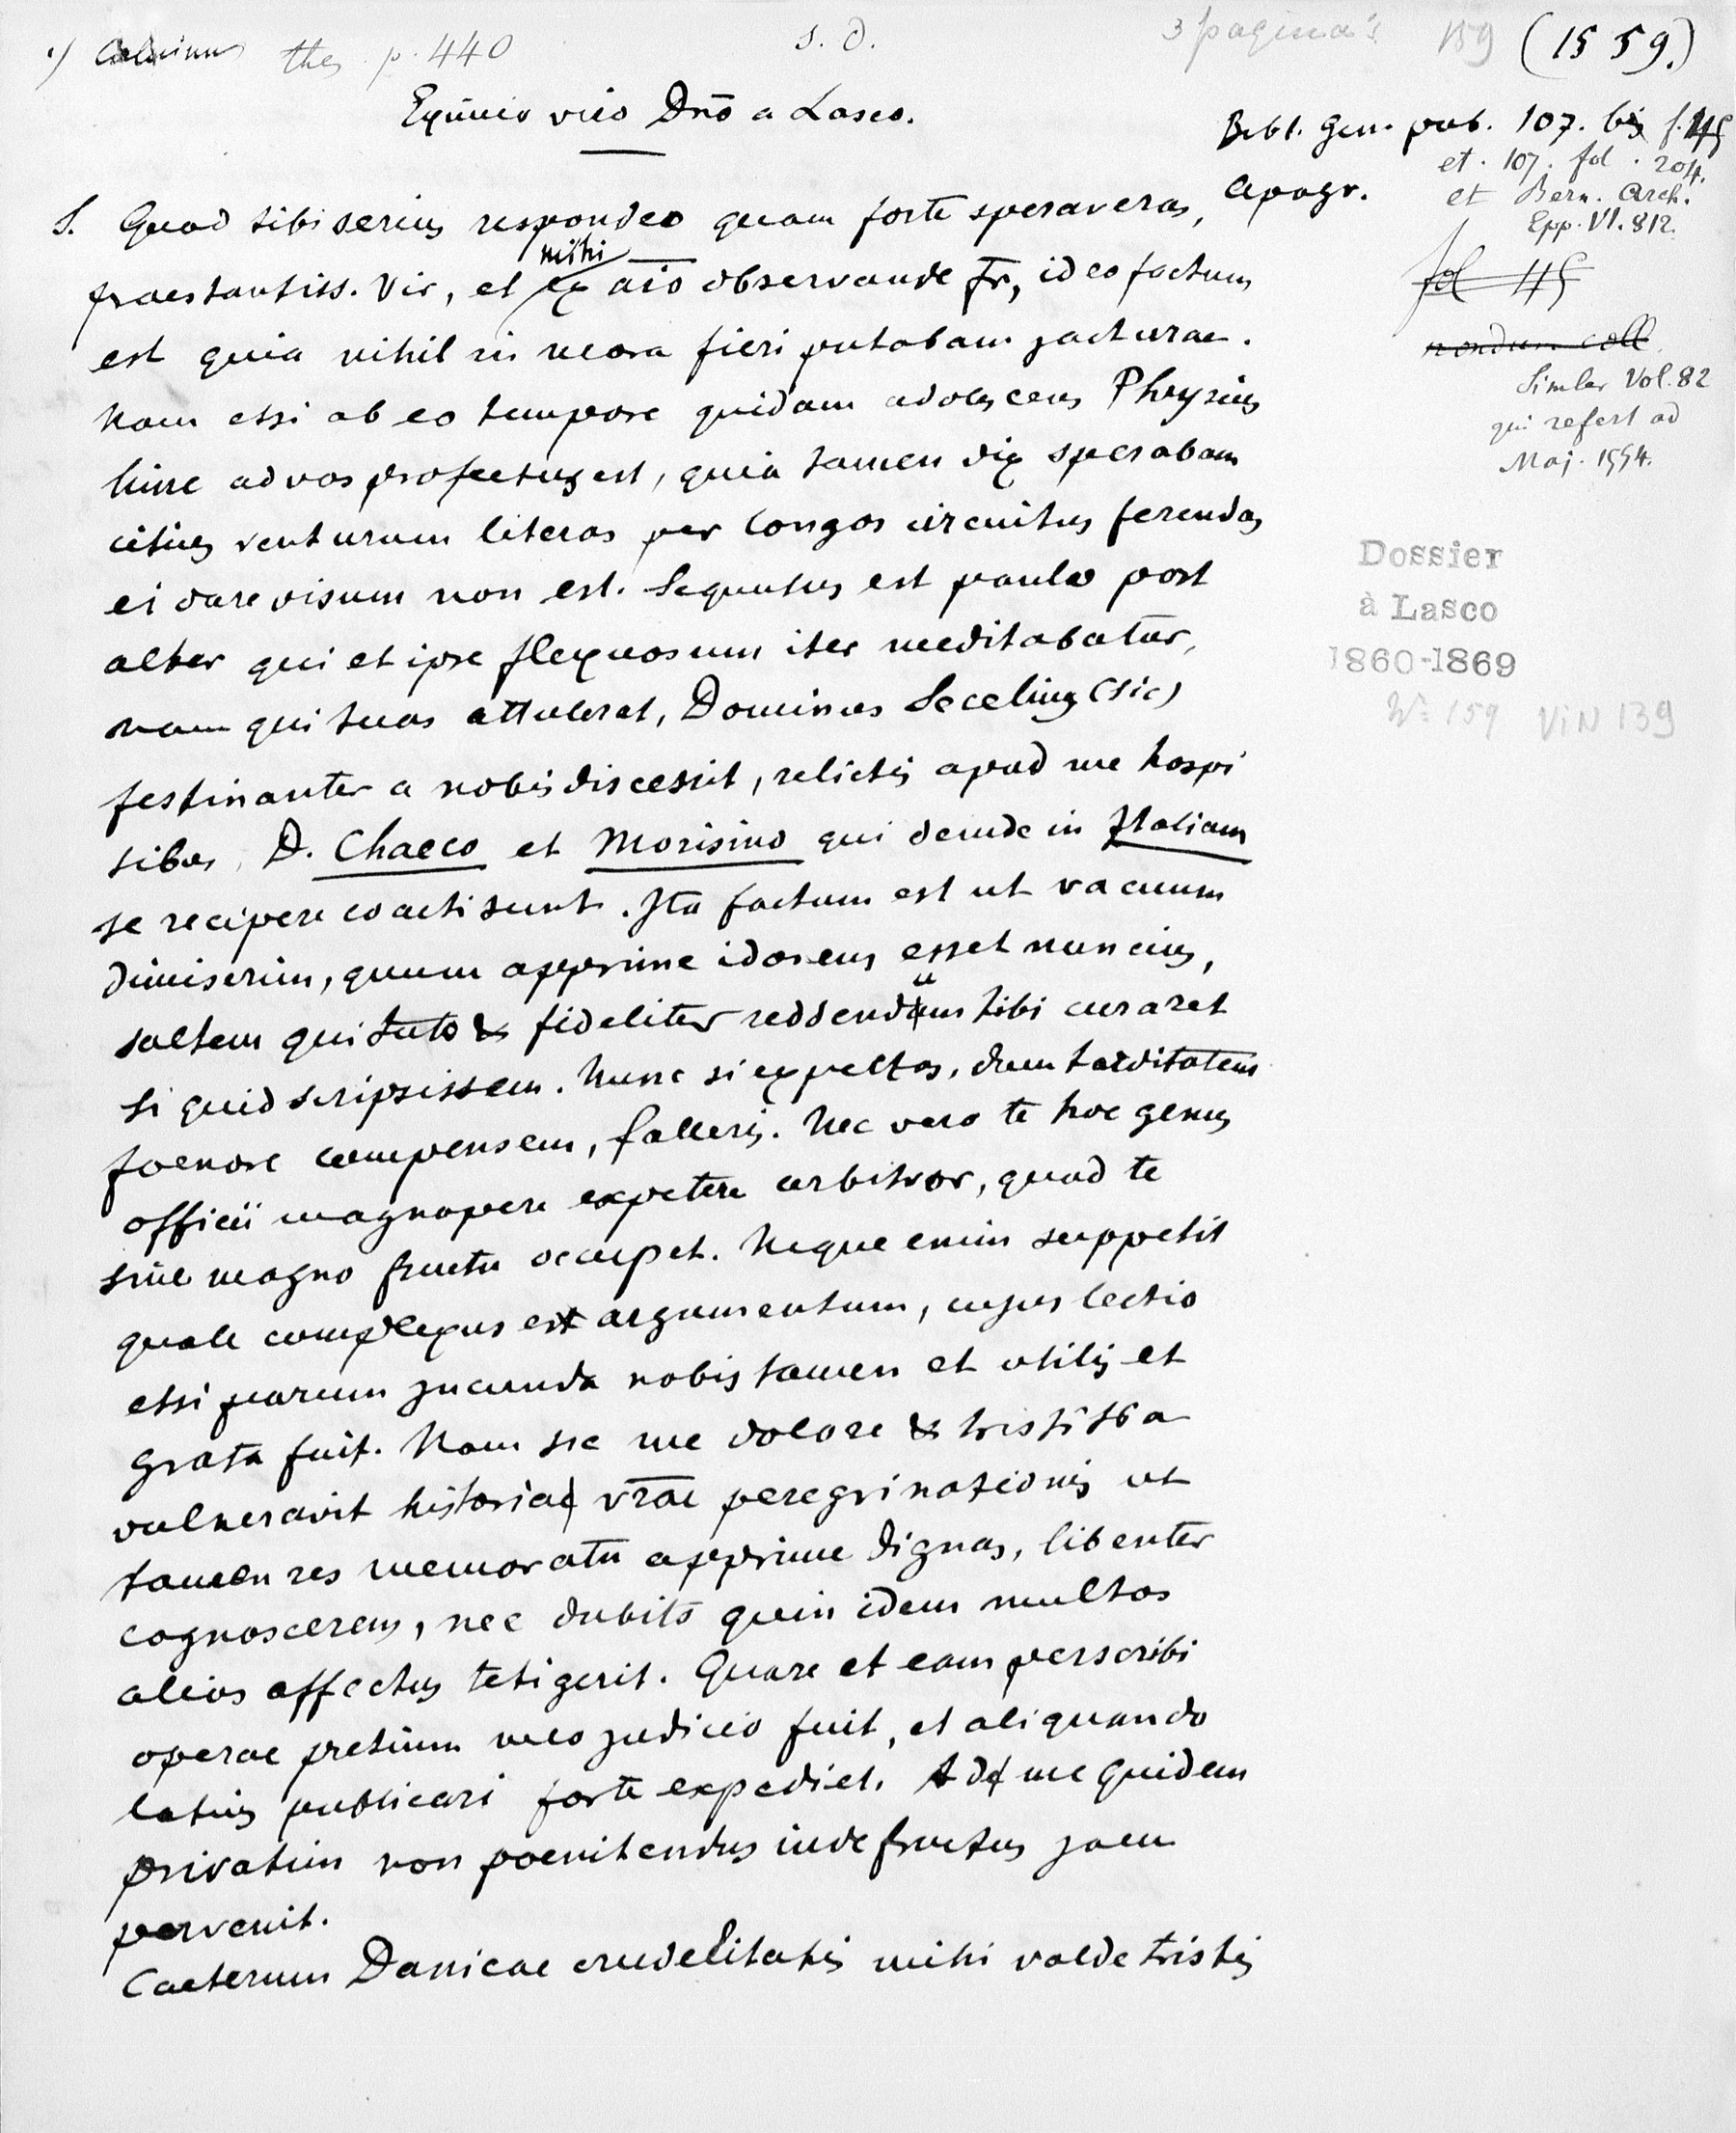 1) Calvinus thes p. 440
s. d.
3 pagina's
159 (1559.)
Eximio viro Dno a Lasco.
Bibl. Gen. pub. 107. bis f. 115
et. 107. fol. 204.
Apogr.
et Bern. Arch.
Epp. VI. 812.
fol 115
nondum coll.
Simler Vol. 82
qui refert ad
Maj. 1554.
Dossier
à Lasco
1860-1869
No 159 ViN 139
S. Quod tibi serius respondeo quam forte speraveras,
praestantiss. Vir, et mihi ex aio observande Fr, id eo factum
est quia nihil in mora fieri putabam jacturae.
Nam etsi ab eo tempore quidam adolescens Phrysius
hinc ad vos profectus est, quia tamen vix sperabam
citius venturum literas per longos circuitus ferendas
ei dare visum non est. Sequutus est paulo post
alter qui et ipse flexuosum iter meditabatur,
nam qui tuas attulerat, Dominus Secelius (sic)
festinanter a nobis discessit, relictis apud me hospi
tibus, D. Chaeco et Morisino qui deinde in Italiam
se recipere coacti sunt. Ita factum est ut vacuum
dimiserim, quum apprime idoneus esset nuncius,
saltem qui tuto & fideliter reddendum tibi curaret
si quid scripsissem. Nunc si expectas, dum tarditatem
foenore compensem, falleris. Nec vero te hoc genus
officii magnopere expetere arbitror, quod te
sine magno fructu occupet. Neque enim suppetit
quale complexus es argumentum, cujus lectio
etsi parum jucunda nobis tamen et utilis et
grata fuit. Nam sic me dolore & tristitia
vulneravit historia vrae peregrinationis ut
tamen res memoratu apprime dignas, libenter
cognoscerem, nec dubito quin idem multos
alios affectus tetigerit. Quare et eam perscribi
operae pretium meo judicio fuit, et aliquando
latius publicari forte expediet. Ad me quidem
privatim non poenitendus inde fructus jam
pervenit.
Caeterum Danicae crudelitatis mihi valde tristis